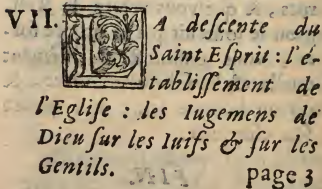 VII. LA deſcente du
Saint Eſprit : l'é-
tabliſſement de
l'Egliſe : les Iugemens de
Dieu ſur les Iuifs & ſur les
Gentils. page 3